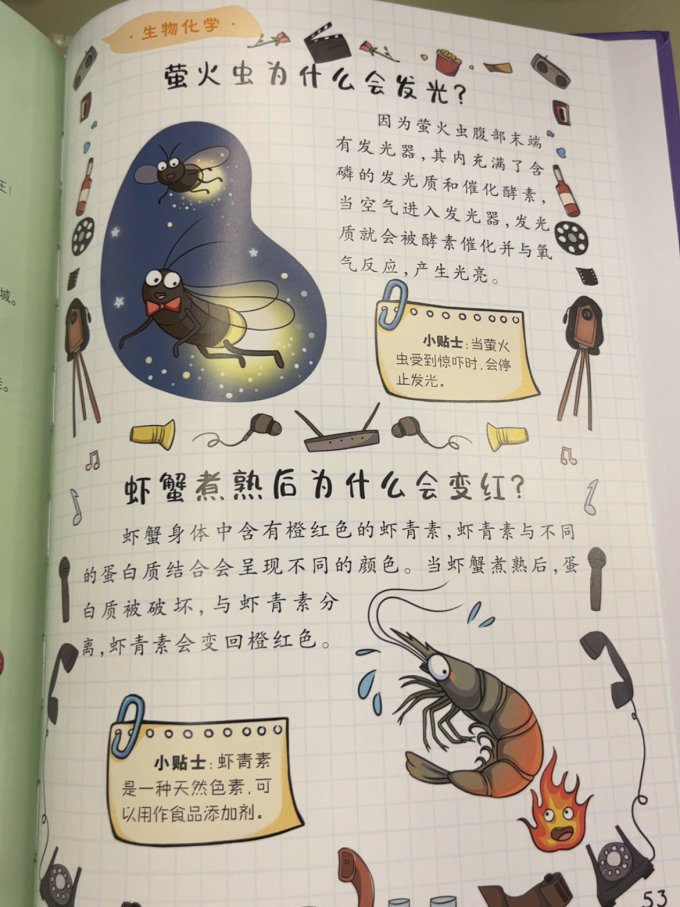 ·生物化学·
萤火虫为什么会发光？
因为萤火虫腹部末端
有发光器，其内充满了含
磷的发光质和催化酵素，
当空气进入发光器，发光
质就会被酵素催化并与氧
气反应，产生光亮。
小贴士：当萤火
虫受到惊吓时，会停
止发光。
虾蟹煮熟后为什么会变红？
虾蟹身体中含有橙红色的虾青素，虾青素与不同
的蛋白质结合会呈现不同的颜色。当虾蟹煮熟后，蛋
白质被破坏，与虾青素分
离，虾青素会变回橙红色。
小贴士：虾青素
是一种天然色素，可
以用作食品添加剂。
53
城。